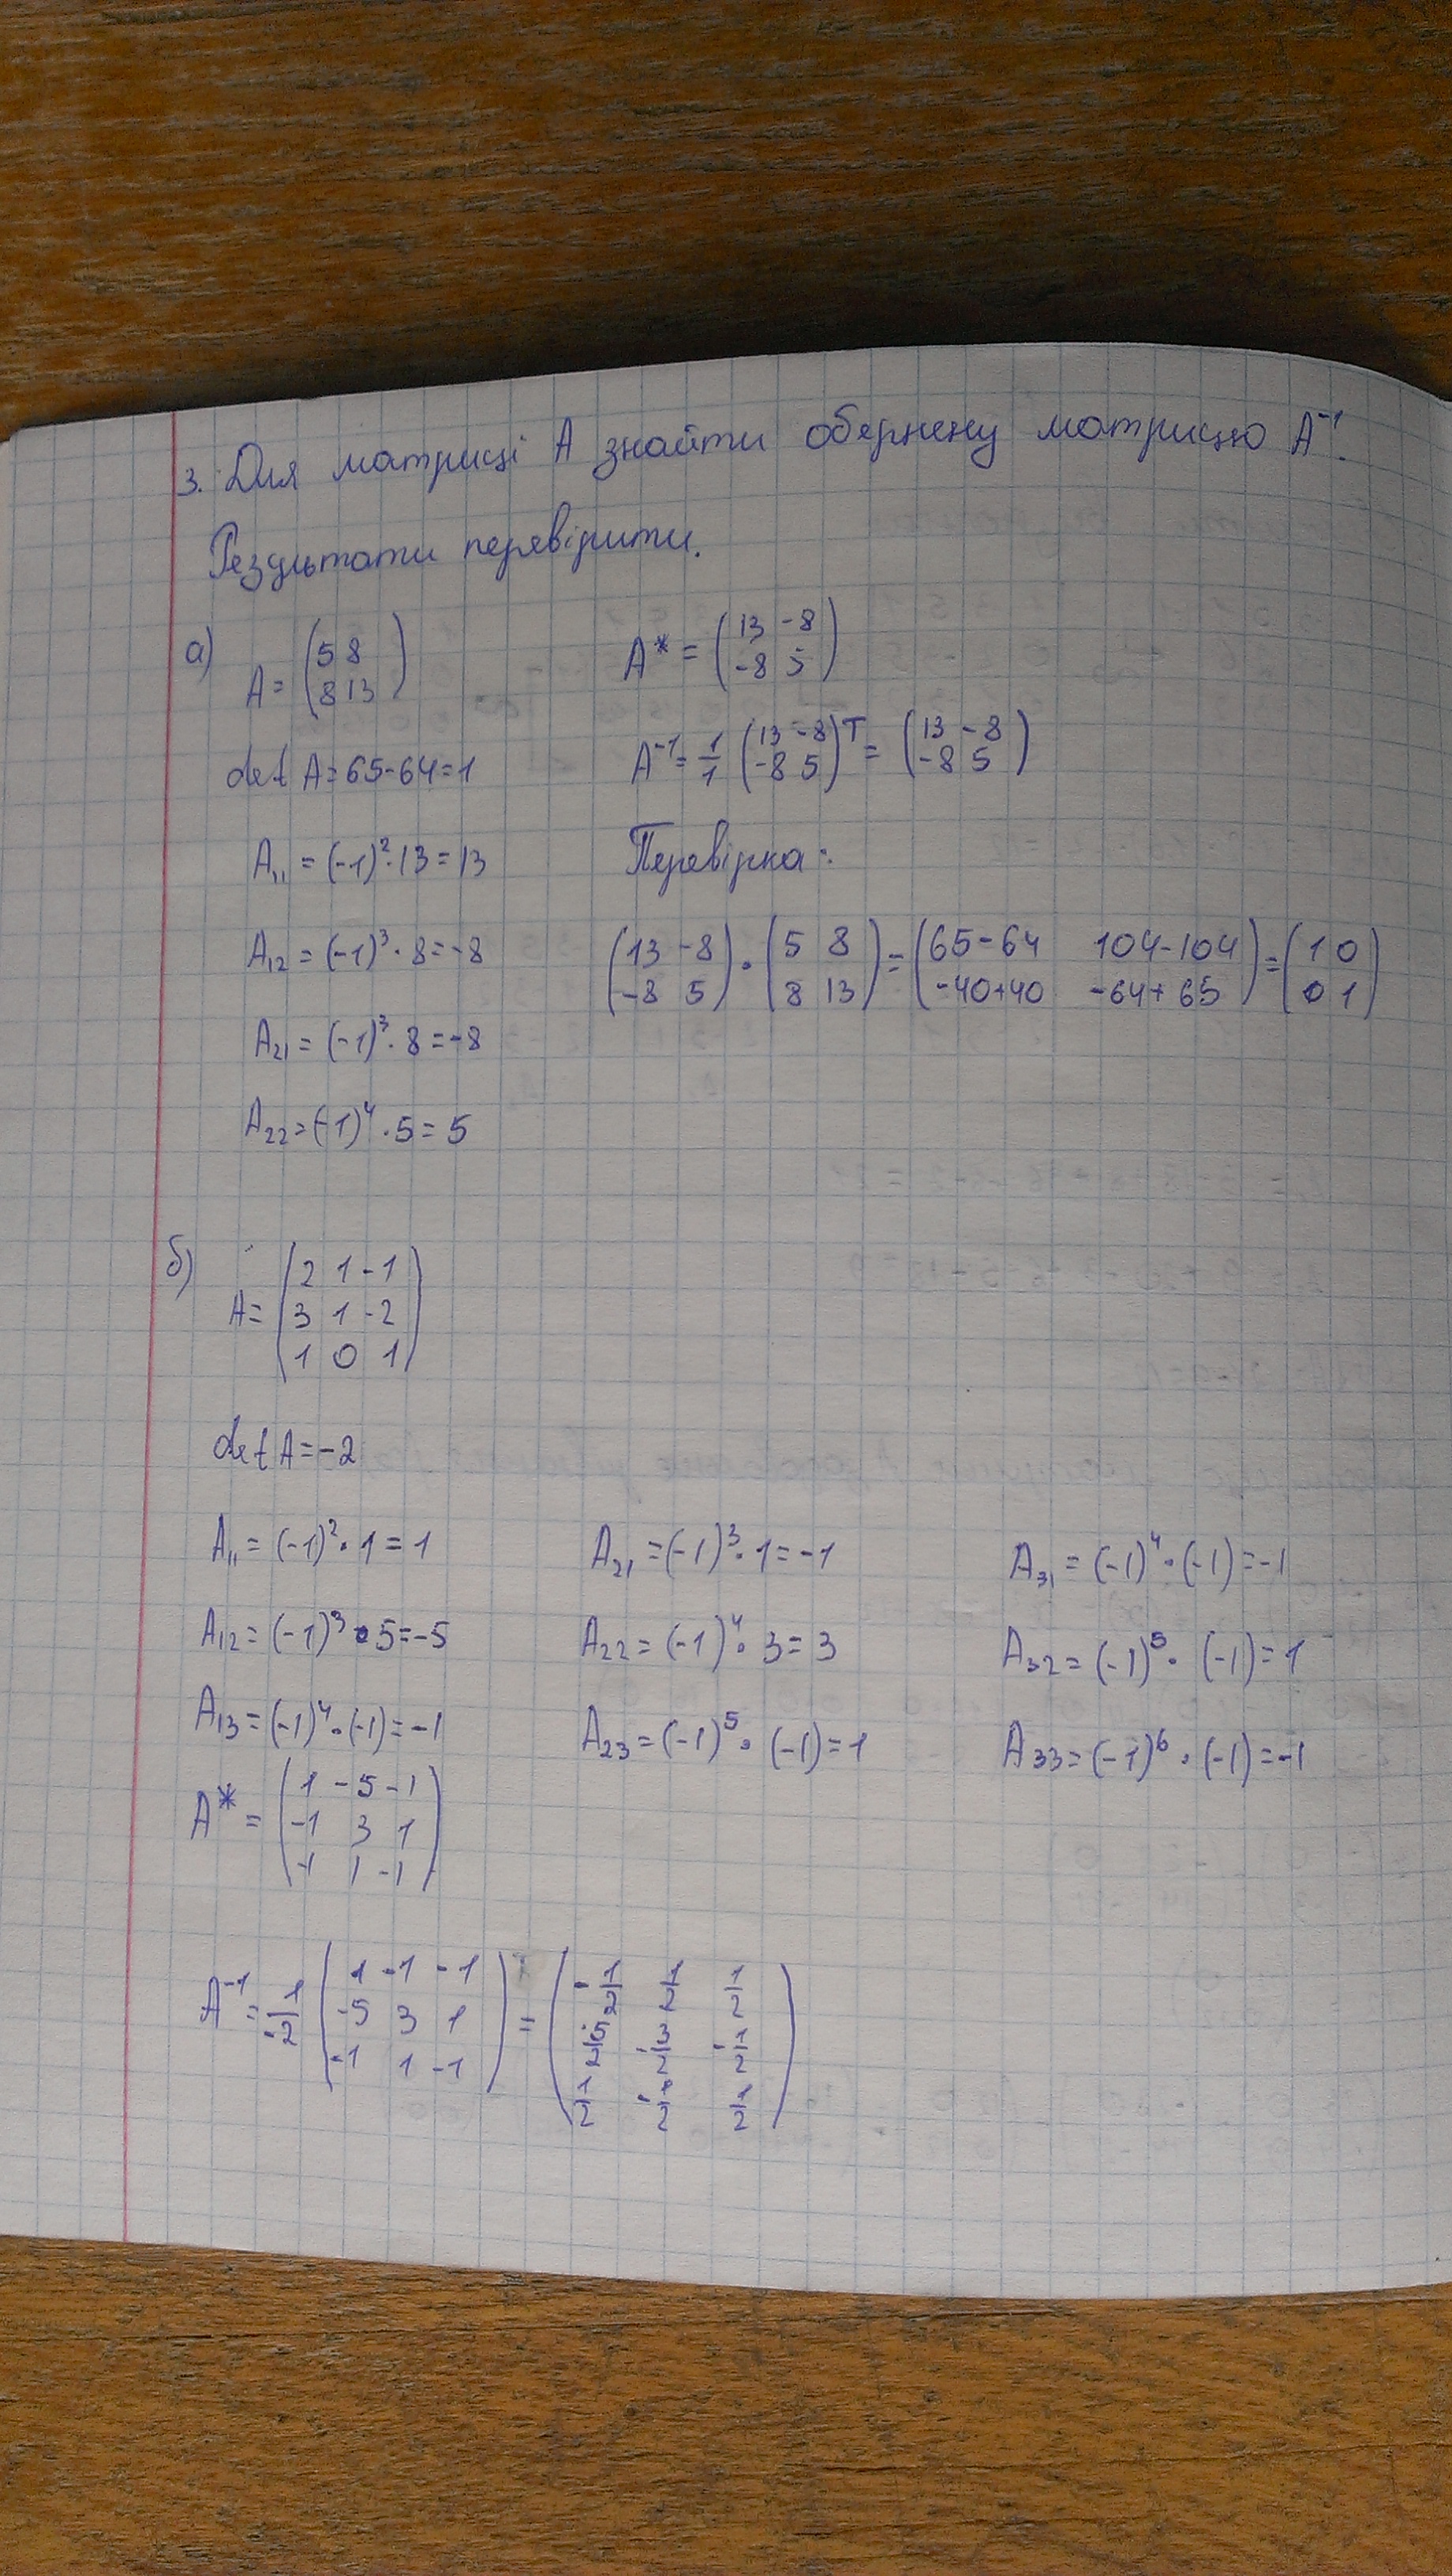 3. Для матриці A знайти обернену матрицю A⁻¹.
Результати перевірити.
а) A = (5 8
8 13)
det A = 65-64 = 1
A₁₁ = (-1)²·13 = 13
A₁₂ = (-1)³·8 = -8
A₂₁ = (-1)³·8 = -8
A₂₂ = (-1)⁴·5 = 5
A* = (13 -8
-8 5)
A⁻¹ = 1/1 (13 -8
-8 5)ᵀ = (13 -8
-8 5)
Перевірка:
(13 -8
-8 5) · (5 8
8 13) = (65-64 104-104
-40+40 -64+65) = (1 0
0 1)
б) A = (2 1 -1
3 1 -2
1 0 1)
det A = -2
A₁₁ = (-1)²·1 = 1
A₁₂ = (-1)³·5 = -5
A₁₃ = (-1)⁴·(-1) = -1
A₂₁ = (-1)³·1 = -1
A₂₂ = (-1)⁴·3 = 3
A₂₃ = (-1)⁵·(-1) = 1
A₃₁ = (-1)⁴·(-1) = -1
A₃₂ = (-1)⁵·(-1) = 1
A₃₃ = (-1)⁶·(-1) = -1
A* = (1 -5 -1
-1 3 1
-1 1 -1)
A⁻¹ = 1/-2 (1 -1 -1
-5 3 1
-1 1 -1) = (-1/2 1/2 1/2
5/2 -3/2 -1/2
1/2 -1/2 1/2)